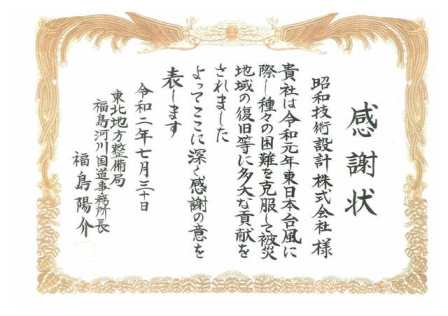 感謝状
昭和技術設計株式会社 様
貴社は令和元年東日本台風に
際し種々の困難を克服して被災
地域の復旧等に多大な貢献を
されました
よってここに深く感謝の意を
表します
令和二年七月三十日
東北地方整備局
福島河川国道事務所長
福島陽介